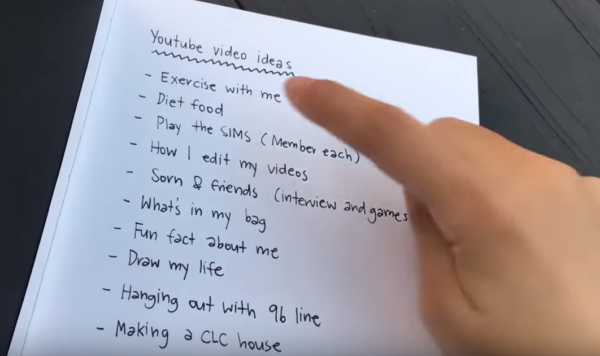 Youtube video ideas
- Exercise with me
- Diet food
- Play the SIMS (Member each)
- How I edit my videos
- Sorn & friends (interview and games
- What's in my bag
- Fun fact about me
- Draw my life
- Hanging out with 96 line
- Making a CLC house